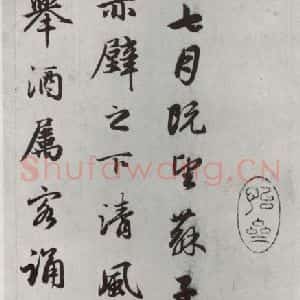 七月既望蘇子
赤壁之下清風
舉酒属客誦
Shufawang.CN